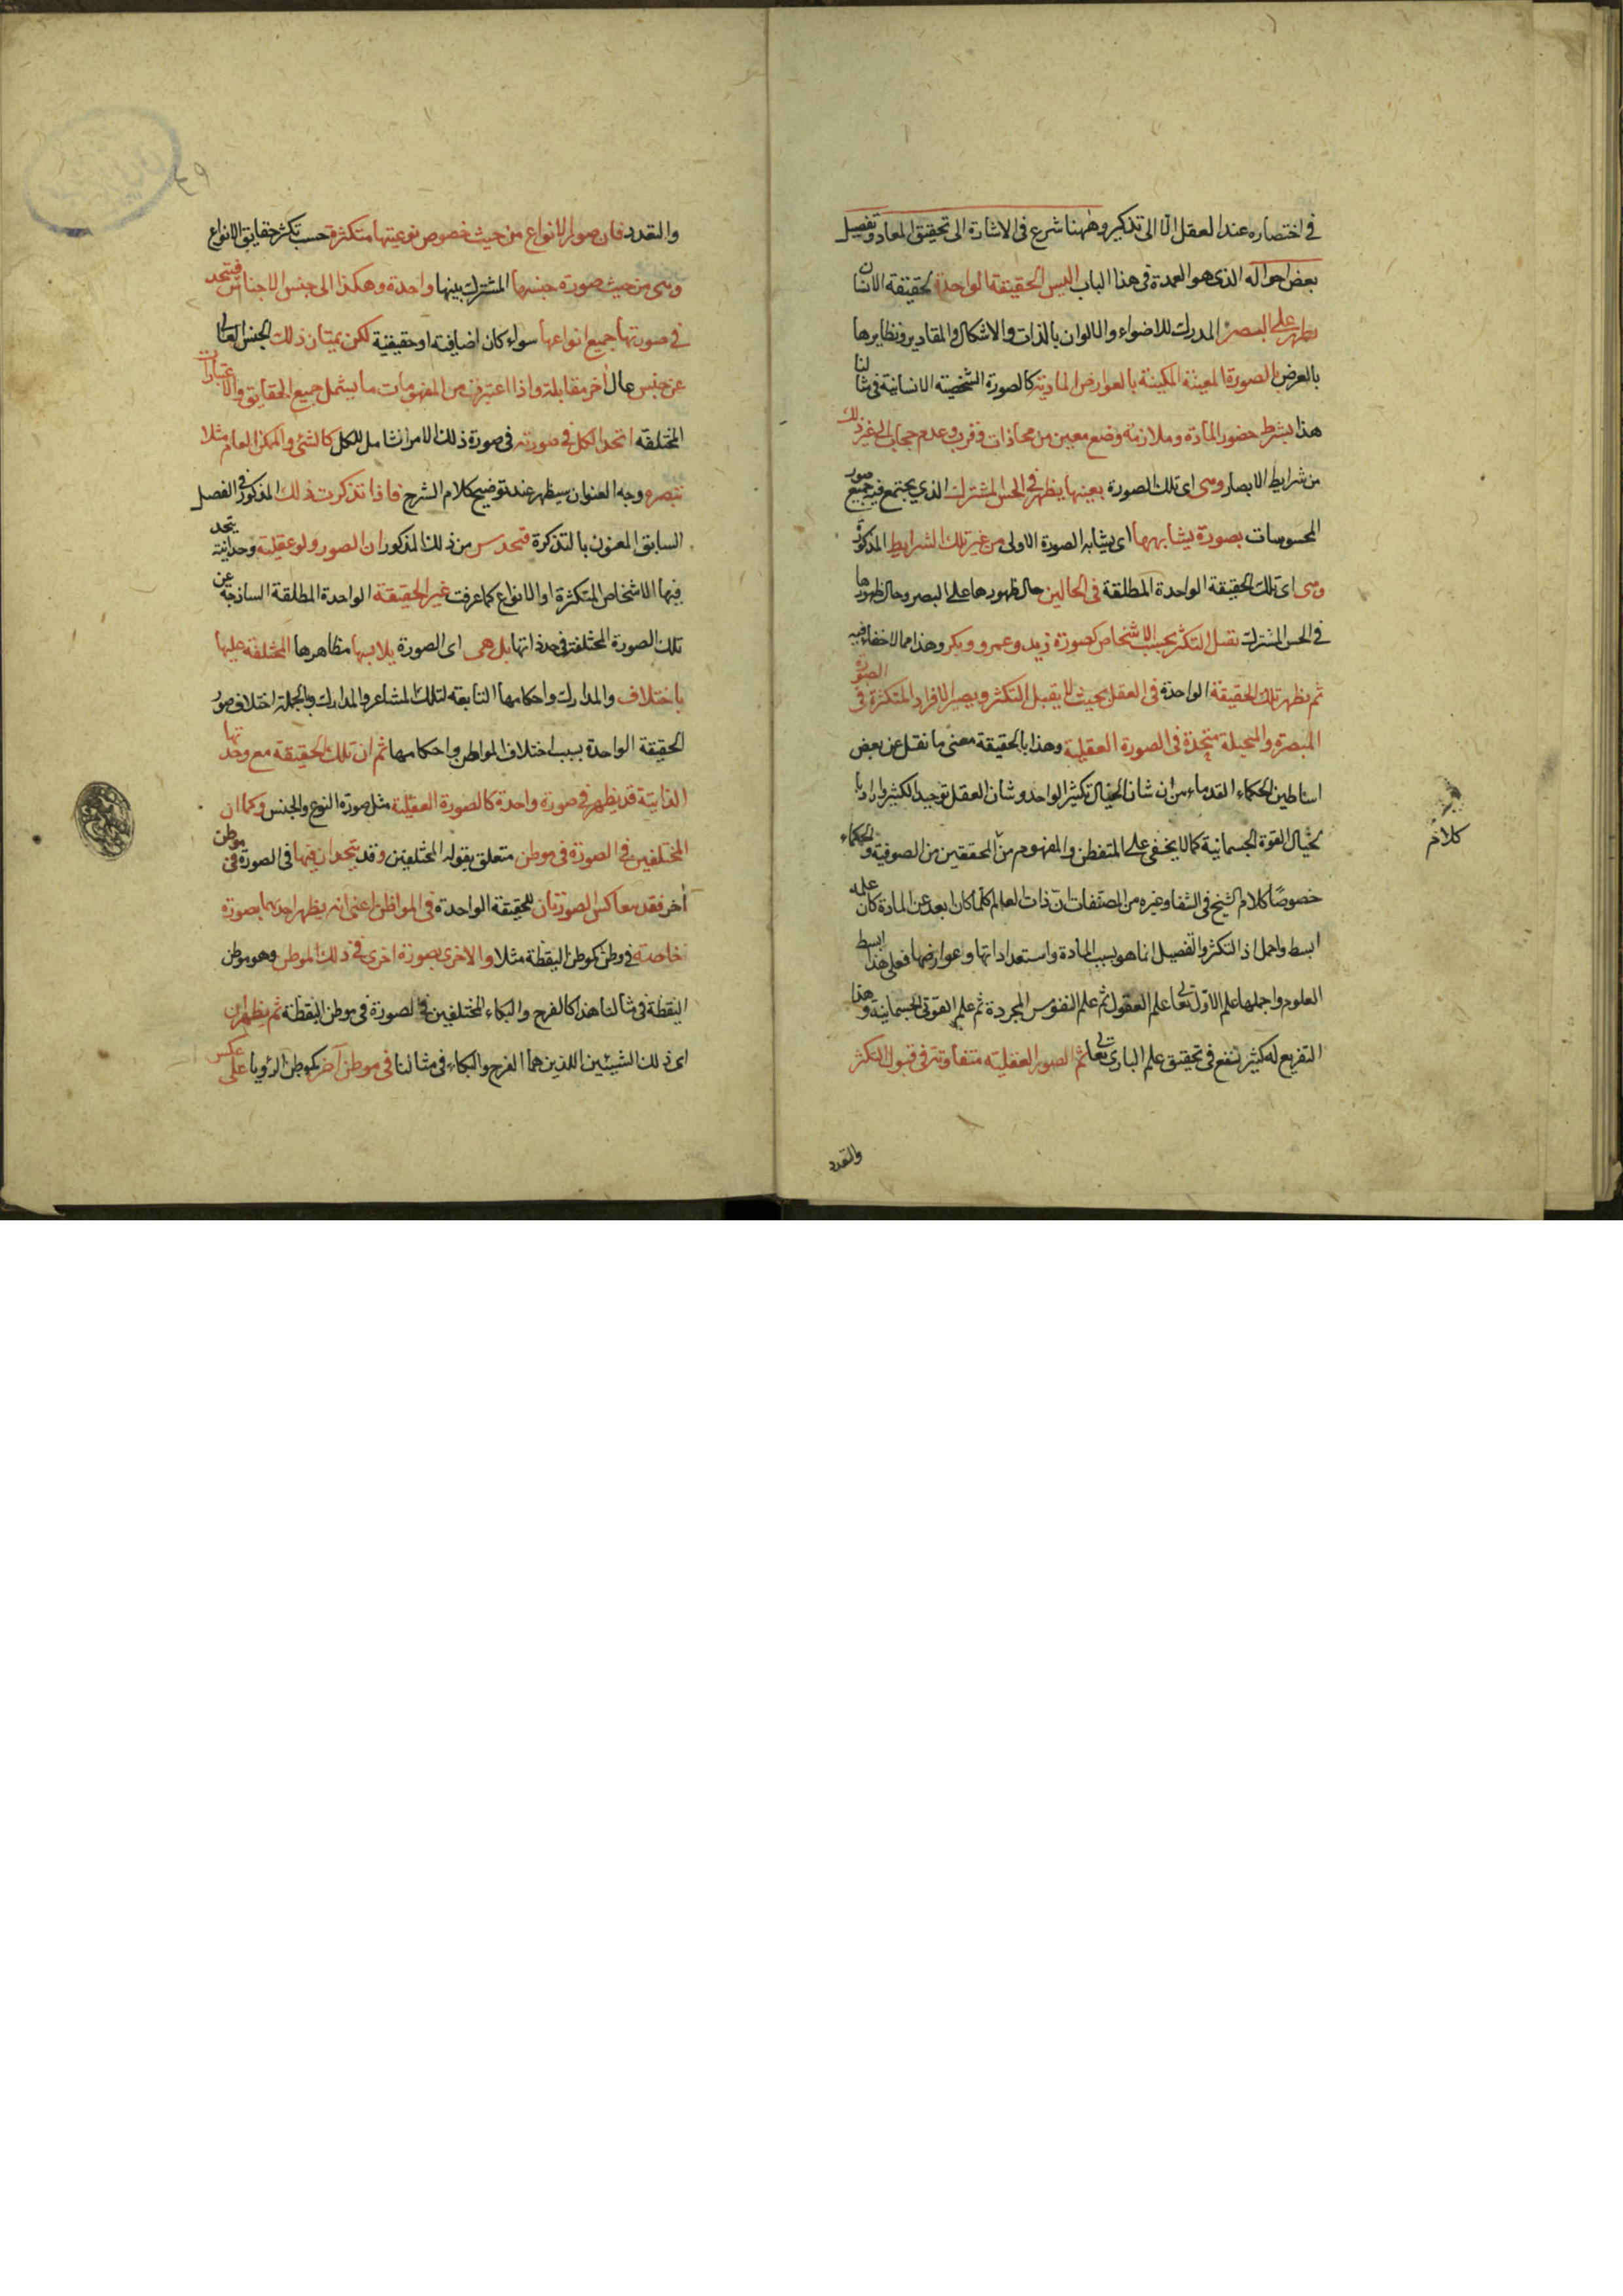 في اختصاره عند العقل الا الى تذكير وههنا شرع في الاشارة الى تحقيق المعاد وتفصيل
بعض احواله الذي هو العمدة في هذا الباب اليس الحقيقة الواحدة كحقيقة الانسان
تظهر على البصر المدرك للاضواء والالوان بالذات والاشكال والمقادير ونظايرها
بالعرض بالصورة المعينة المكيفة بالعوارض المادية كالصورة الشخصية الانسانية في مثالنا
هذا بشرط حضور المادة وملازمة وضع معين من محاذات وقرب وعدم حجاب الى غير ذلك
من شرايط الابصار وهي اى تلك الصورة بعينها يظهر في الحس المشترك الذي يجتمع فيه جميع صور
المحسوسات بصورة يشابهها اى يشابه الصورة الاولى من غير تلك الشرايط المذكورة
وهى اى تلك الحقيقة الواحدة المطلقة في الحالين حال ظهورها على البصر وحال ظهورها
في الحس المشترك تقبل التكثر بحسب الاشخاص كصورة زيد وعمرو وبكر وهذا مما لاخفاء فيه
ثم يظهر تلك الحقيقة الواحدة في العقل بحيث لا يقبل التكثر ويصير الافراد المتكثرة في الصورة
المبصرة والمخيلة متحدة في الصورة العقلية وهذا بالحقيقة معنى ما نقل عن بعض
اساطين الحكماء القدماء من ان شان الخيال تكثير الواحد وشان العقل توحيد الكثير وارادبا
لخيال القوة الجسمانية كما لا يخفى على المتفطن والمفهوم من المحققين من الصوفية والحكماء
كلام
خصوصًا كلام الشيخ في الشفا وغيره من المصنفات ان ذات العالم كلما كان ابعد عن المادة كان علمه
ابسط واجمل اذ التكثر والتفصيل انما هو بسبب المادة واستعداداتها وعوارضها فعلى هذا ابسط
العلوم واجملها علم الاول تعالى ثم علم العقول ثم علم النفوس المجردة ثم علم القوى الجسمانية وهذا
التفريع له كثير نفع في تحقيق علم البارى تعالى ثم الصور العقلية متفاوتة في قبول التكثر
والتعدد
٤٩
والتعدد فان صور الانواع من حيث خصوص نوعيتها متكثرة حسب تكثر حقايق الانواع
وهى من حيث صورة جنسها المشترك بينها واحدة وهكذا الى جنس الاجناس فتتحد
في صورتها جميع انواعها سواء كان اضافية او حقيقية لكن يمتاز ذلك الجنس العالى
عن جنس عال آخر مقابلة واذا اعتبر من المفهومات ما يشمل جميع الحقايق والاعتبارات
المختلفة اتحد الكل في صورته في صورة ذلك الامر الشامل للكل كالشئ والممكن العام مثلا
تبصره وجه العنوان سيظهر عند توضيح كلام الشرح فاذا تذكرت ذلك المذكور في الفصل
السابق المعنون بالتذكرة فتحدس من ذلك المذكور ان الصور ولو عقلية وحدانية يتحد
فيها الاشخاص المتكثرة او الانواع كما عرفت غير الحقيقة الواحدة المطلقة الساذجة عن
تلك الصورة المختلفة في حد ذاتها بل هى اى الصورة يلابسها مظاهرها المختلفة عليها
باختلاف والمدارك واحكامها التابعة لتلك المشاعر والمدارك وبالجملة اختلاف صور
الحقيقة الواحدة بسبب اختلاف المواطن واحكامها ثم ان تلك الحقيقة مع وحدتها
الذاتية قد يظهر في صورة واحدة كالصورة العقلية مثل صورة النوع والجنس وكما ان
المختلفين في الصورة في موطن متعلق بقوله المختلفين وقد يتحدان فيها في الصورة في موطن
آخر فقد تعاكس الصورتان للحقيقة الواحدة في المواطن اعنى انه يظهر احديهما بصورة
خاصة في وطن كموطن اليقظة مثلا والاخرى بصورة اخرى في ذلك الموطن وهو موطن
اليقظة في مثالنا هذا كالفرح والبكاء المختلفين في الصورة في موطن اليقظة ثم يظهران
اى ذلك الشيئين اللذين هما الفرح والبكاء في مثالنا في موطن آخر كموطن الرؤيا على عكس